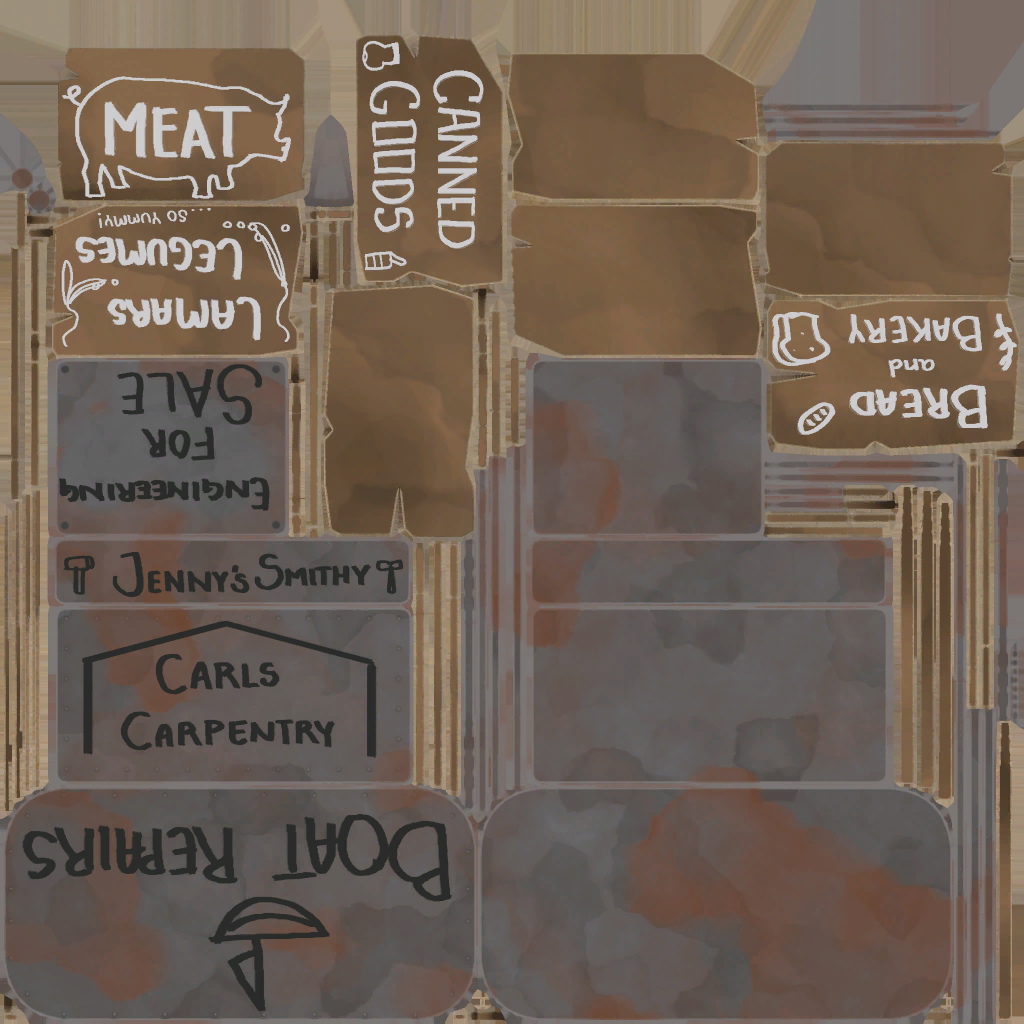 MEAT
CANNED
GOODS
LAMARS
LEGUMES
...SO YUMMY!
BREAD
and
BAKERY
ENGINEERING
FOR
SALE
JENNY'S SMITHY
CARLS
CARPENTRY
BOAT REPAIRS